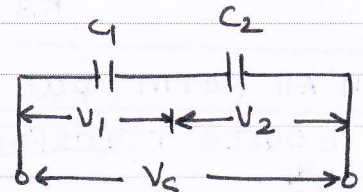 C₁ C₂
V₁ V₂
Vs